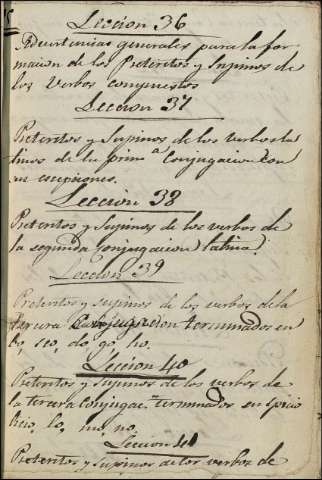 Leccion 36
Advertencias generales para la for
macion de los Preteritos y Supinos de
los verbos compuestos
Leccion 37
Preteritos y Supinos de los verbos la
tinos de la prim.ª Conjugacion con
sus excepciones.
Leccion 38
Preteritos y Supinos de los verbos de
la segunda Conjugacion latina.
Leccion 39
Preteritos y supinos de los verbos de la
tercera Conjugacion terminados en
do, go, ho.
Leccion 40
Preteritos y Supinos de los verbos de
la tercera Conjugac.n terminados en
lo, mo, no.
Leccion 41
Preteritos y Supinos de los verbos de